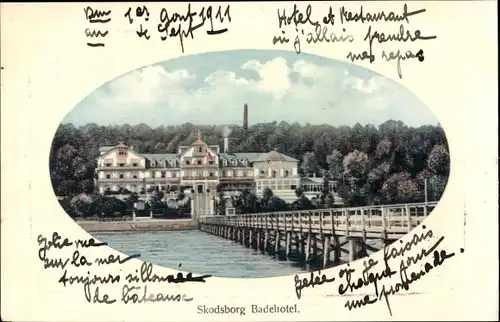 Du 1er Aout 1911
au 4 Sept
Hotel et Restaurant
où j'allais prendre
mes repas
Jolie vue
sur la mer
toujours sillonée
de bateause
Jetée où je
faisais
chaque jour
une promenade.
Skodsborg Badehotel.